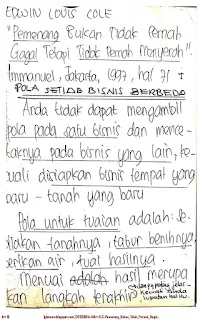 EDWIN LOUIS COLE
"Pemenang Bukan Tidak Pernah
Gagal Tetapi Tidak Pernah Menyerah".
Immanuel, Jakarta, 1997, hal 71
POLA SETIAP BISNIS BERBEDA
Anda tidak dapat mengambil
pola pada satu bisnis dan mence-
taknya pada bisnis yang lain, ke-
uali disiapkan bisnis tempat yang
baru - tanah yang baru
Pola untuk tuaian adalah: se-
diakan tanahnya, tabur benihnya
berikan air, tuai hasilnya.
Menuai adalah hasil merupa
kan langkah terakhir